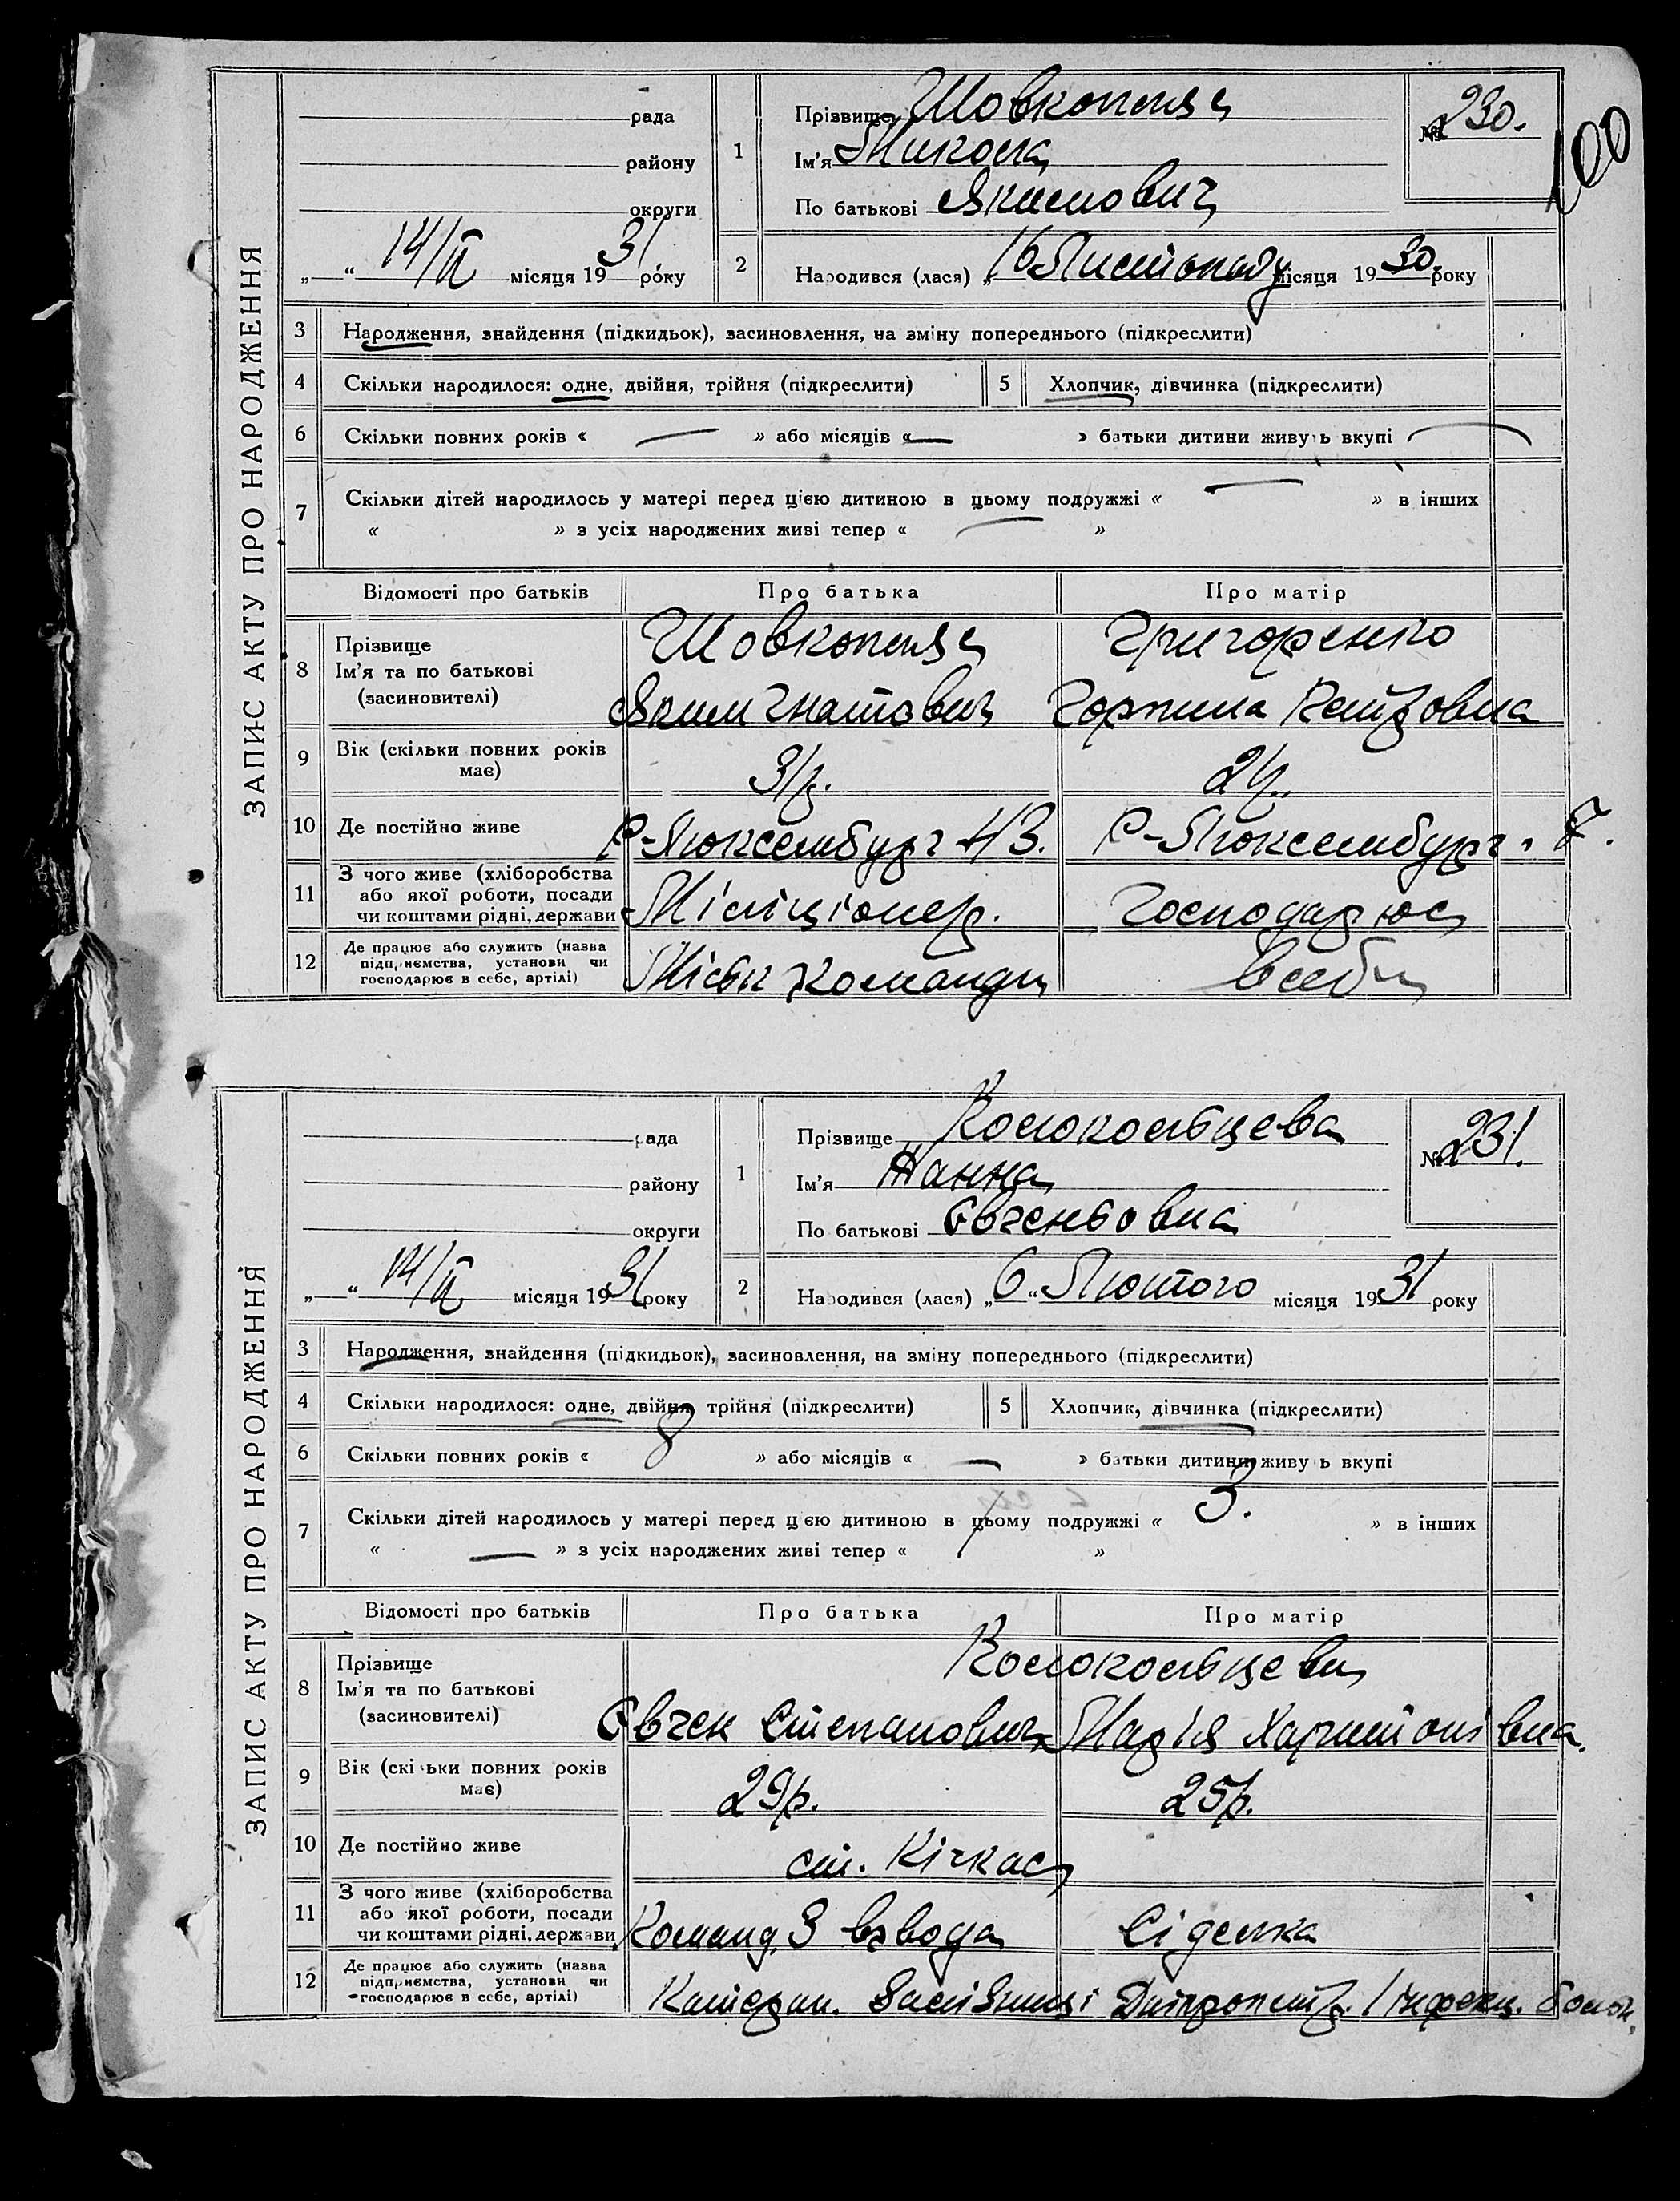 ЗАПИС АКТУ ПРО НАРОДЖЕННЯ
100
рада
району
округи
14/II місяця 1931 року
1
Прізвище Шовкопляс
Ім'я Микола
По батькові Якимович
№ 230.
2
Народився (лася) „16 Листопаду місяця 1930 року
3 Народження, знайдення (підкидьок), засиновлення, на зміну попереднього (підкреслити)
4 Скільки народилося: одне, двійня, трійня (підкреслити) 5 Хлопчик, дівчинка (підкреслити)
6 Скільки повних років « — » або місяців « — » батьки дитини живуть вкупі —
7 Скільки дітей народилось у матері перед цією дитиною в цьому подружжі « — » в інших
« » з усіх народжених живі тепер « — »
Відомості про батьків Про батька Про матір
8 Прізвище
Ім'я та по батькові
(засиновителі)
Шовкопляс Григоренко
Яким Гнатович Горпина Петровна
9 Вік (скільки повних років має) 31р. 21р.
10 Де постійно живе Р-Люксембург 43. Р-Люксембург 7.
11 З чого живе (хліборобства
або якої роботи, посади
чи коштами рідні, держави
Міліціонер. Господарює
12 Де працює або служить (назва
підприємства, установи чи
господарює в себе, артілі)
Міськ команди в себе
ЗАПИС АКТУ ПРО НАРОДЖЕННЯ
рада
району
округи
„ “ 14/II місяця 1931 року
1
Прізвище Колокольцева
Ім'я Жанна
По батькові Євгеньовна
№ 231.
2
Народився (лася) „6“ Лютого місяця 1931 року
3 Народження, знайдення (підкидьок), засиновлення, на зміну попереднього (підкреслити)
4 Скільки народилося: одне, двійня, трійня (підкреслити) 5 Хлопчик, дівчинка (підкреслити)
6 Скільки повних років « 8 » або місяців « — » батьки дитини живуть вкупі
7 Скільки дітей народилось у матері перед цією дитиною в цьому подружжі « 3. » в інших
« — » з усіх народжених живі тепер « / »
Відомості про батьків Про батька Про матір
8 Прізвище
Ім'я та по батькові
(засиновителі)
Колокольцеви
Євген Степанович Марія Харитонівна.
9 Вік (скільки повних років має) 29р. 25р.
10 Де постійно живе ст. Кічкас
11 З чого живе (хліборобства
або якої роботи, посади
чи коштами рідні, держави
Команд. 3 взвода Сіделка
12 Де працює або служить (назва
підприємства, установи чи
господарює в себе, артілі)
Дніпропетр. інфекц. больн.